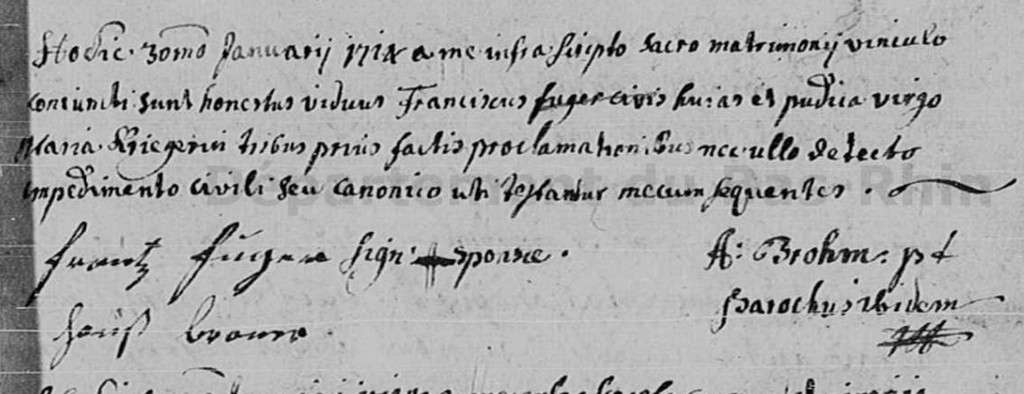 Hodie 30mo Januarij 1714 a me infra scripto sacro matrimonij vinculo
coniuncti sunt honestus viduus Franciscus fuger civis huias et pudica virgo
Maria Kriegerin tribus prius factis proclamationibus nec ullo detecto
impedimento civili seu canonico uti testantur mecum sequentes.
frantz fuger sign: sponsae. A: Brohm. pt
parochus ibidem
hanß
Département du Bas-Rhin